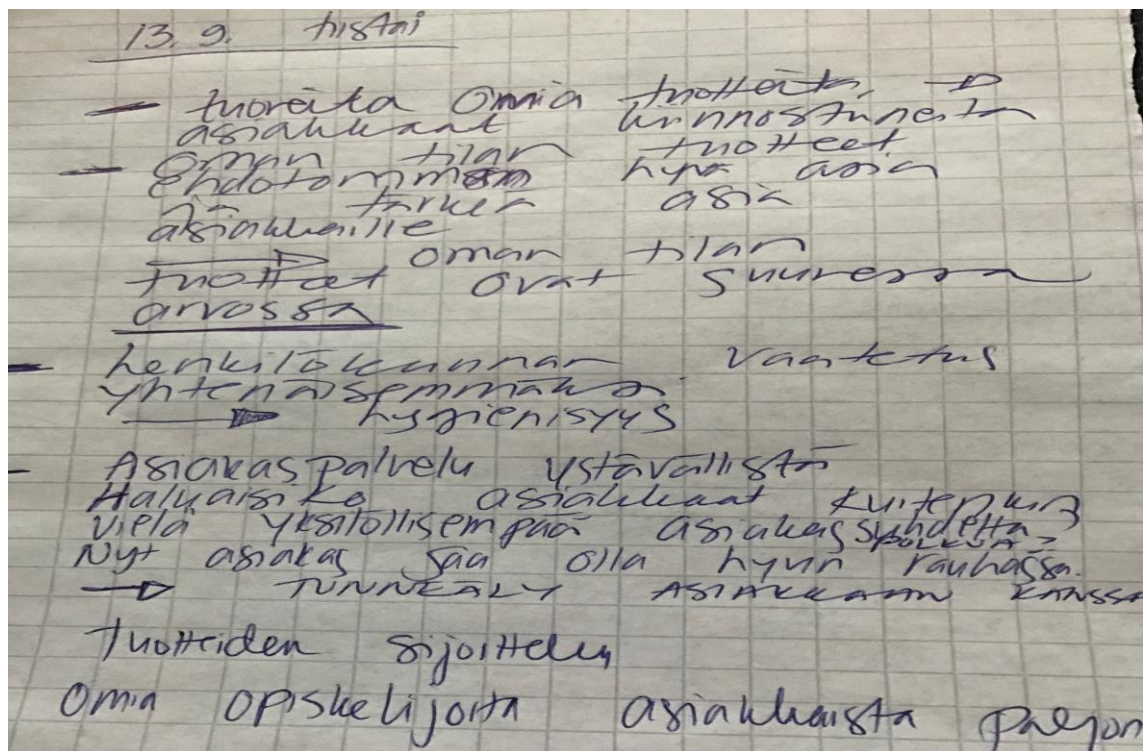 13.9. tiistai
- tuoreita omia tuotteita →
asiakkaat kiinnostuneita
- oman tilan tuotteet
ehdottomman hyvä asia
Ja tärkeä asia
asiakkaille
→ oman tilan
tuotteet ovat suuressa
arvossa
- henkilökunnan vaatetus
yhtenäisemmäksi.
→ hygienisyys
- Asiakaspalvelu ystävällistä
Haluaisiko asiakkaat kuitenkin
vielä yksilöllisempää asiakassuhdetta
polkua?
Nyt asiakas saa olla hyvin rauhassa.
→ TUNNEÄLY ASIAKKAAN KANSSA
Tuotteiden sijoittelu
Omia opiskelijoita asiakkaista paljon